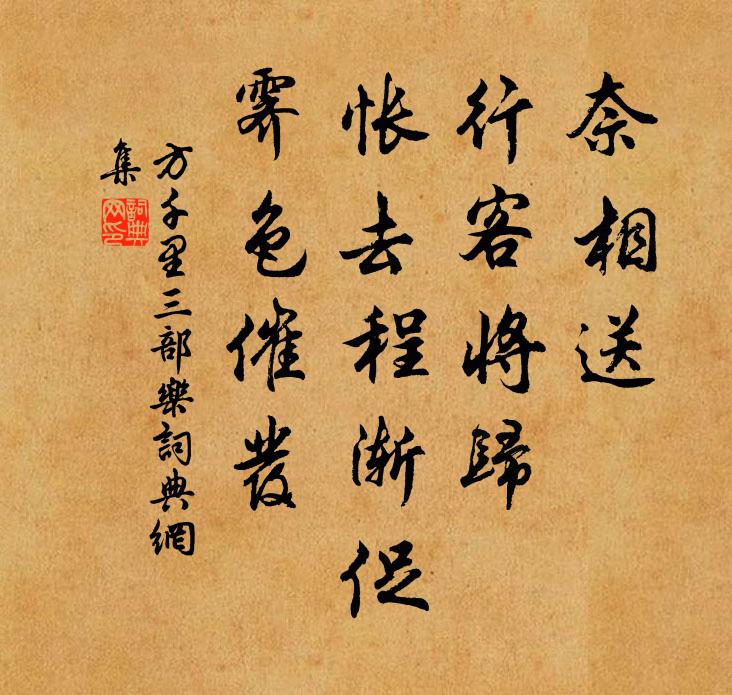 奈相送
行客將歸
悵去程漸促
霽色催發
方千里三部樂詞典網
集
詞典網印